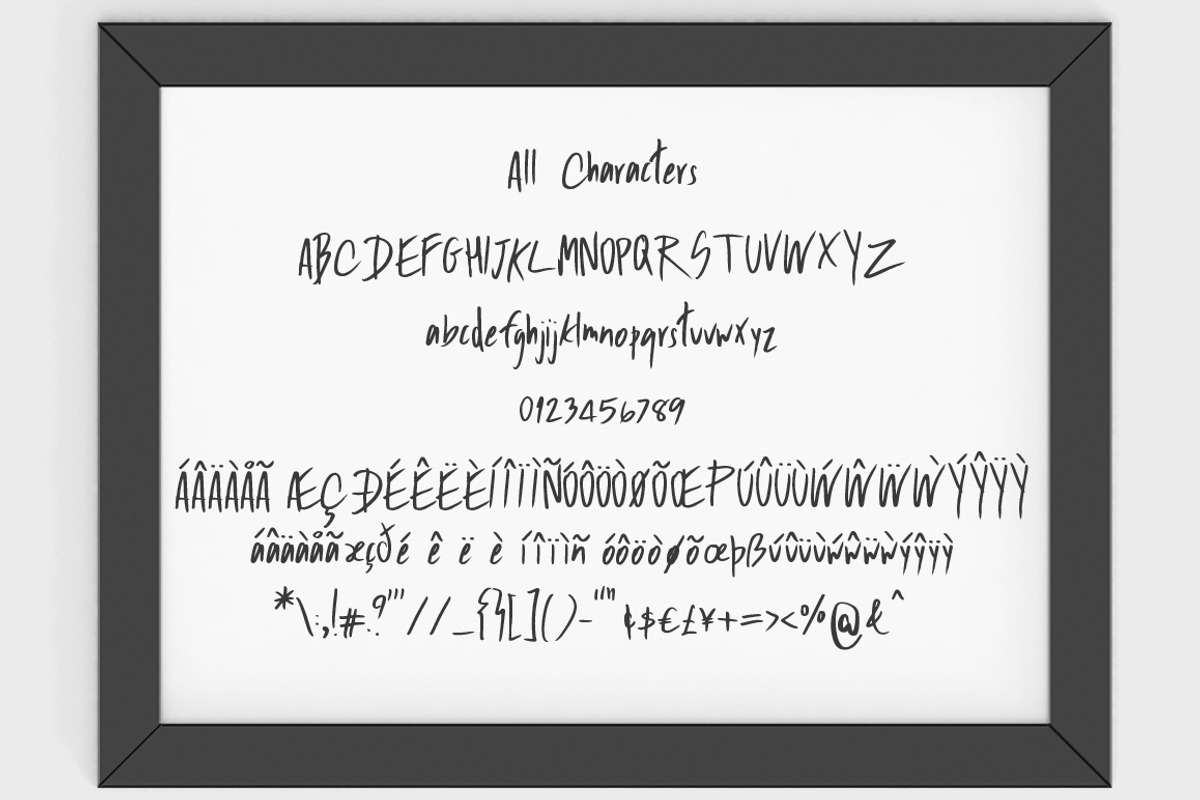 All Characters
ABCDEFGHIJKLMNOPQRSTUVWXYZ
abcdefghijklmnopqrstuvwxyz
0123456789
ÁÂÄÀÅÃ ÆÇÐÉÊËÈÍÎÏÌÑÓÔÖÒØÕŒÞÚÛÜÙẂŴẄẀÝŶŸỲ
áâäàåãæçðé ê ë è íîïìñ óôöòøõœþßúûüùẃŵẅẁýŷÿỳ
*\:;,!#.?'"//_{}[]()-“”¢$€£¥+=><%@&^